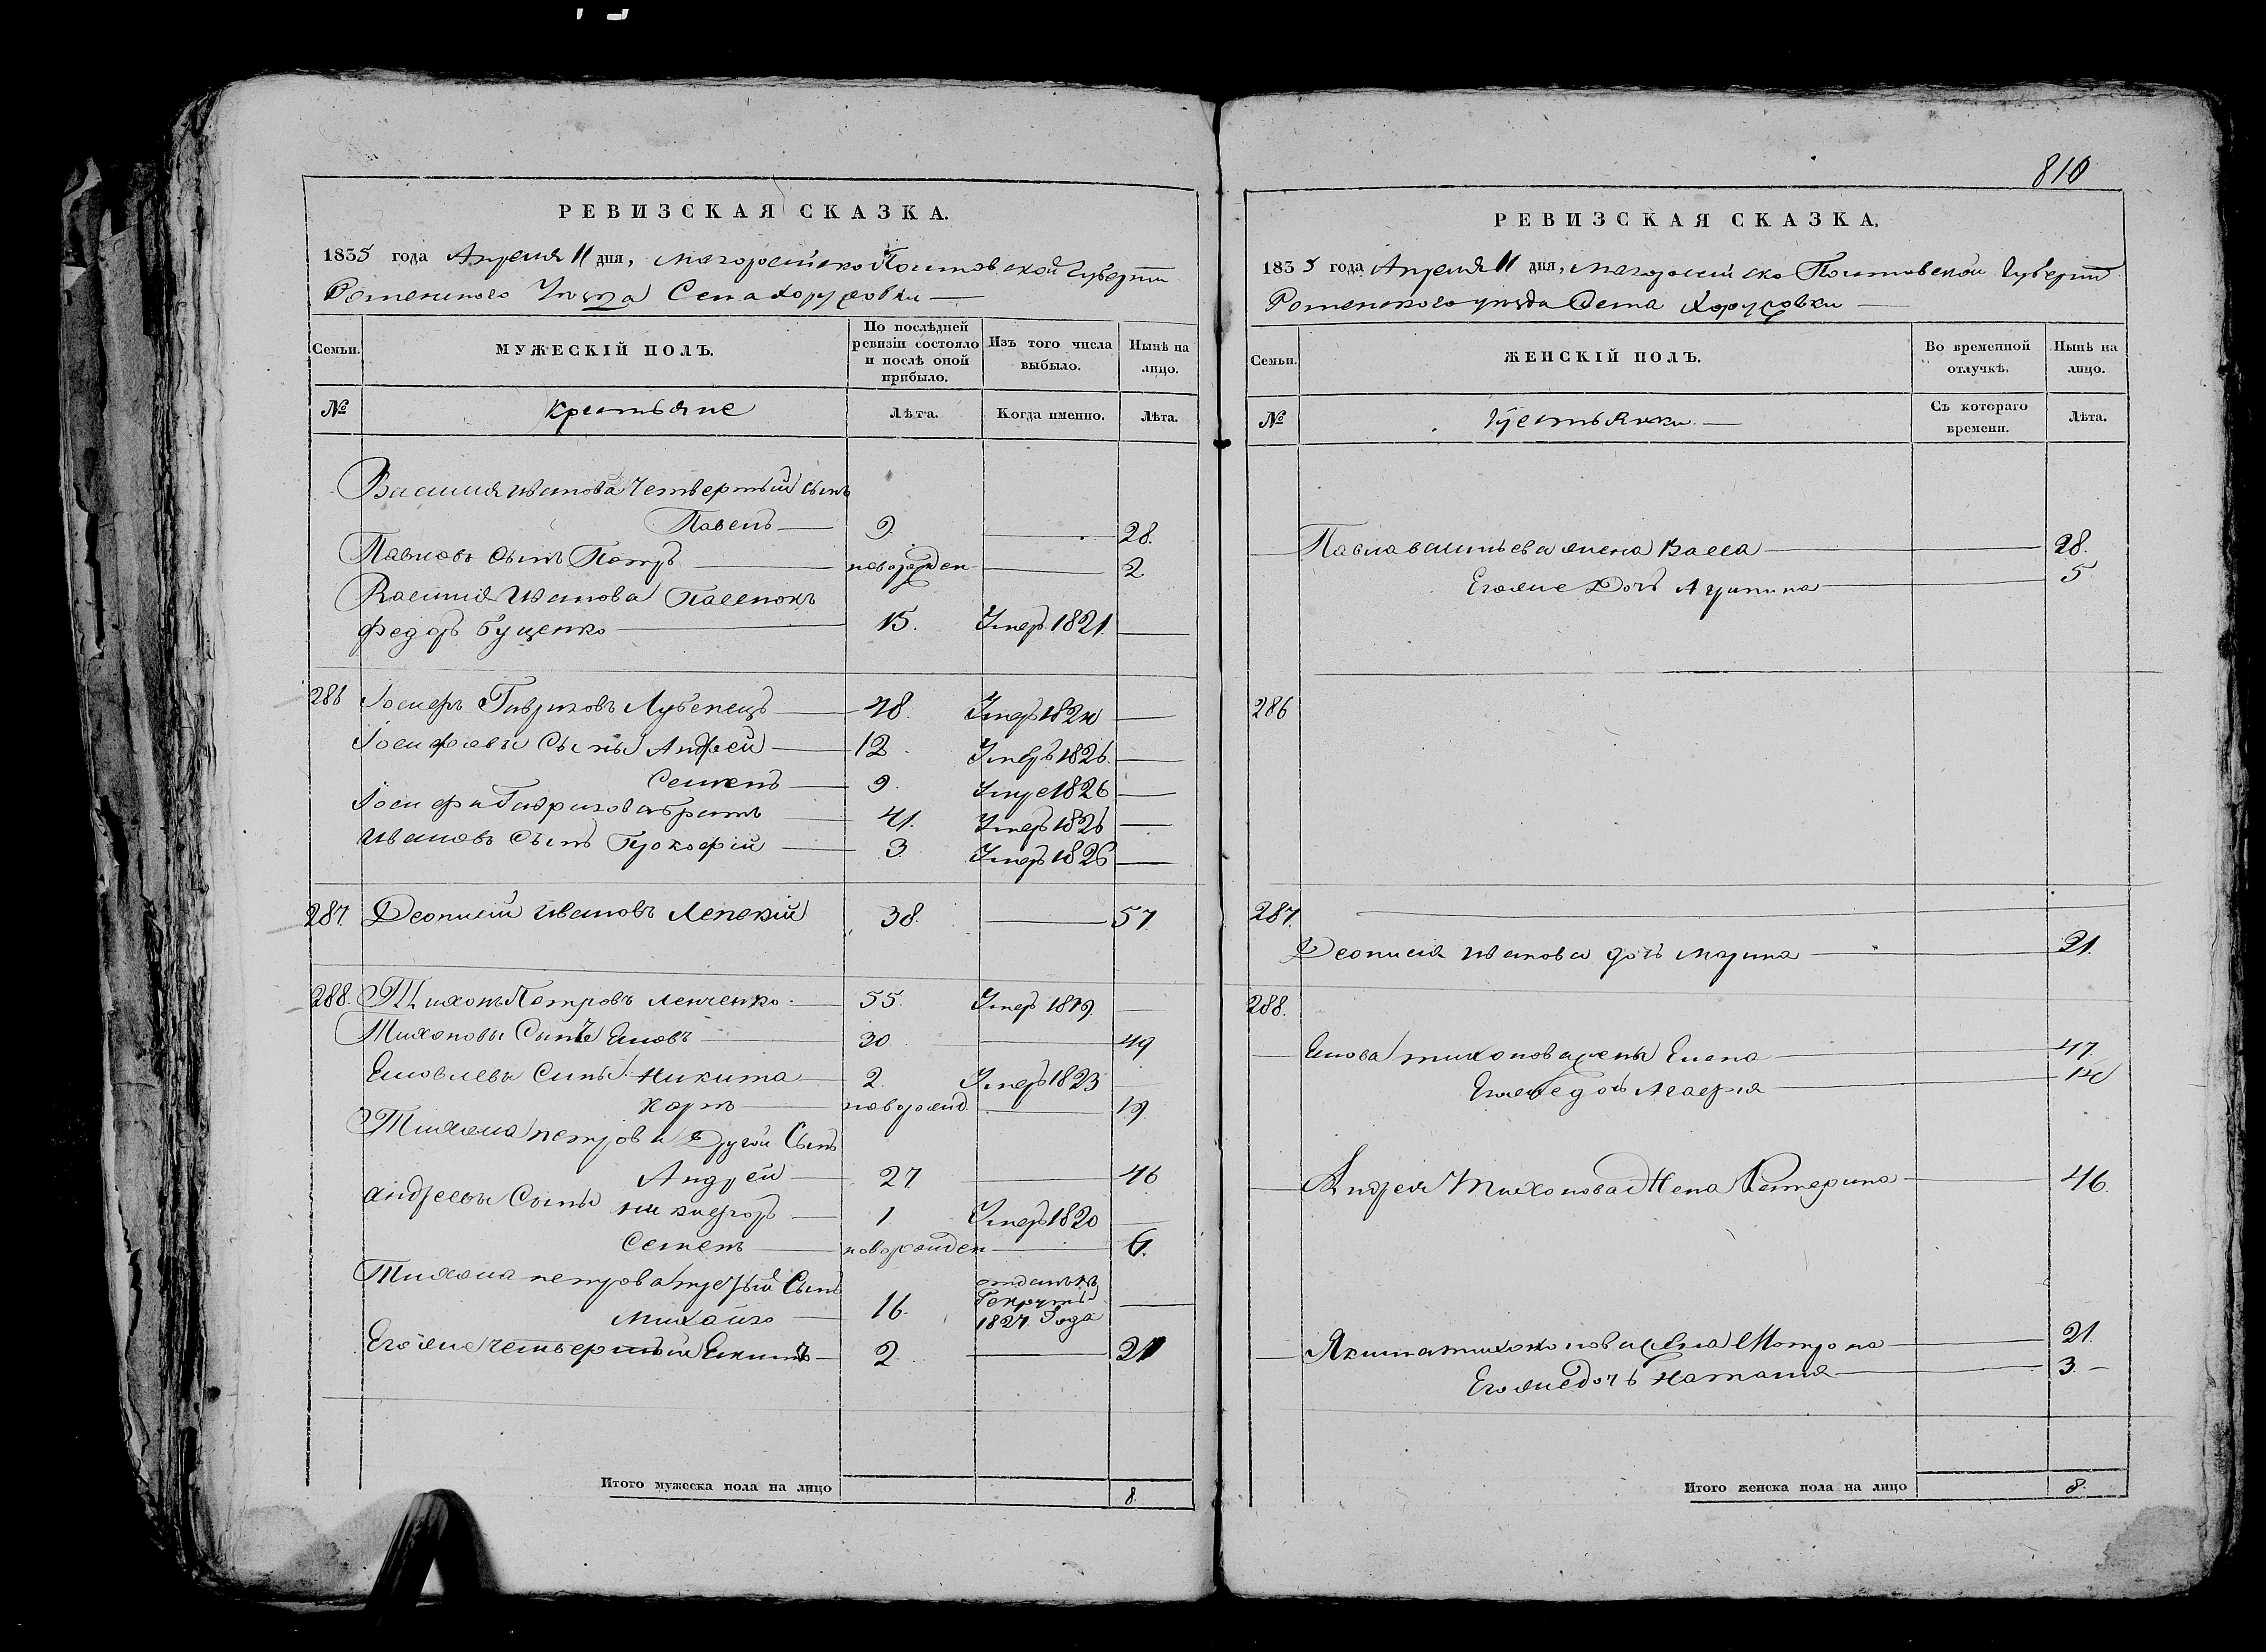 810
РЕВИЗСКАЯ СКАЗКА.
1835 года Апреля 11 дня, Малоросійско Полтавской Губерніи
Роменского Уезда Села Хоружовки
Семьи. МУЖЕСКІЙ ПОЛЪ. По послѣдней ревизіи состояло и послѣ оной прибыло. Изъ того числа выбыло. Нынѣ на лицо.
№ Крестьяне Лѣта. Когда именно. Лѣта.
Василия Иванова Четвертый сынъ
Павелъ 9. 28.
Павловъ Сынъ Петръ новорожден 2.
Василия Иванова Пасенокъ
Федоръ Буценко 15. Умеръ 1821.
286 Іосифъ Гавриловъ Лубенецъ 48. Умеръ 182
Іосифовы Сыны Андрей 12. Умеръ 1826.
Семенъ 9. 1826
Іосифа Гаврилова братъ 41. Умеръ 1826
Ивановъ Сынъ Прокофій 3. Умеръ 1826
287. Леонтий Ивановъ 38. 57.
288. Тихонъ Петровъ Левченко 55. Умеръ 1819.
Тихоновы Сынъ 30 49
Сыны Никита 2. Умеръ 1823
новорожд. 19.
Тихона Петрова Другой Сынъ
Андрей 27 46
Андреевы Сыны Никифоръ 1 Умеръ 1820
Семенъ новорожден 6.
Тихона петрова третый Сынъ
Михайло 16. отданъ въ Рекруты 1827. Года
Его же четвертый 2. 21
Итого мужеска пола на лицо 8.
РЕВИЗСКАЯ СКАЗКА.
1835 года Апреля 11 дня, Малоросійско Полтавской Губерніи
Роменского уезда Села Хоружовки
Семьи. ЖЕНСКІЙ ПОЛЪ. Во временной отлучкѣ. Нынѣ на лицо.
№ Крестьянки Съ котораго времени. Лѣта.
Павла васильева жена Васса 28.
Его же Дочь Агрипина 5.
286
287.
Леонтия Иванова дочь Марина 21.
288.
тихонова жена Елена 47.
Его же дочь 14
Андрея Тихонова Жена Катерина 46.
Якима тихонова жена Мотрона 21.
Его же дочь Наталия 3.
Итого женска пола на лицо 8.